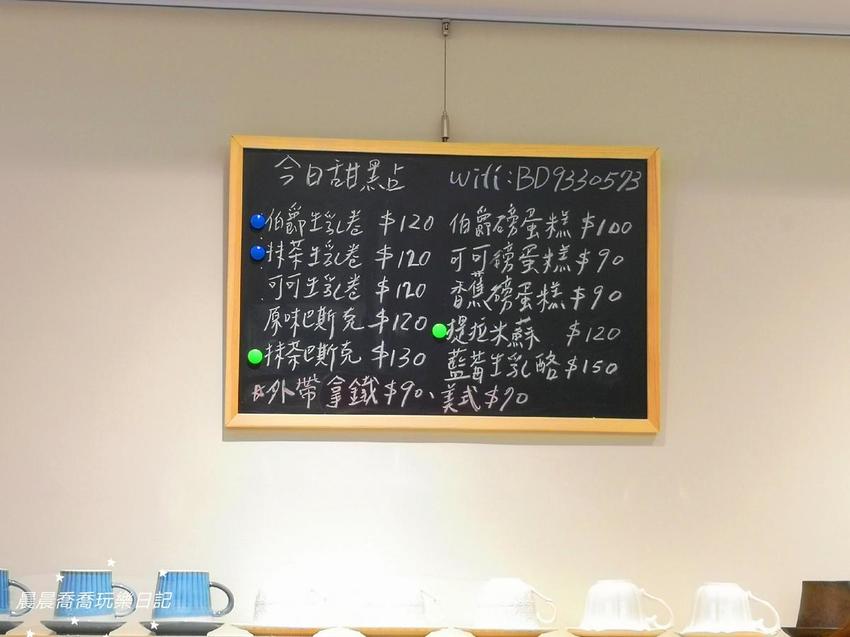 今日甜點
wifi:BD9330573
伯爵生乳卷 $120
抹茶生乳卷 $120
可可生乳卷 $120
原味巴斯克 $120
抹茶巴斯克 $130
伯爵磅蛋糕 $100
可可磅蛋糕 $90
香蕉磅蛋糕 $90
提拉米蘇 $120
藍莓生乳酪 $150
外帶拿鐵 $90、美式 $70
晨晨喬喬玩樂日記